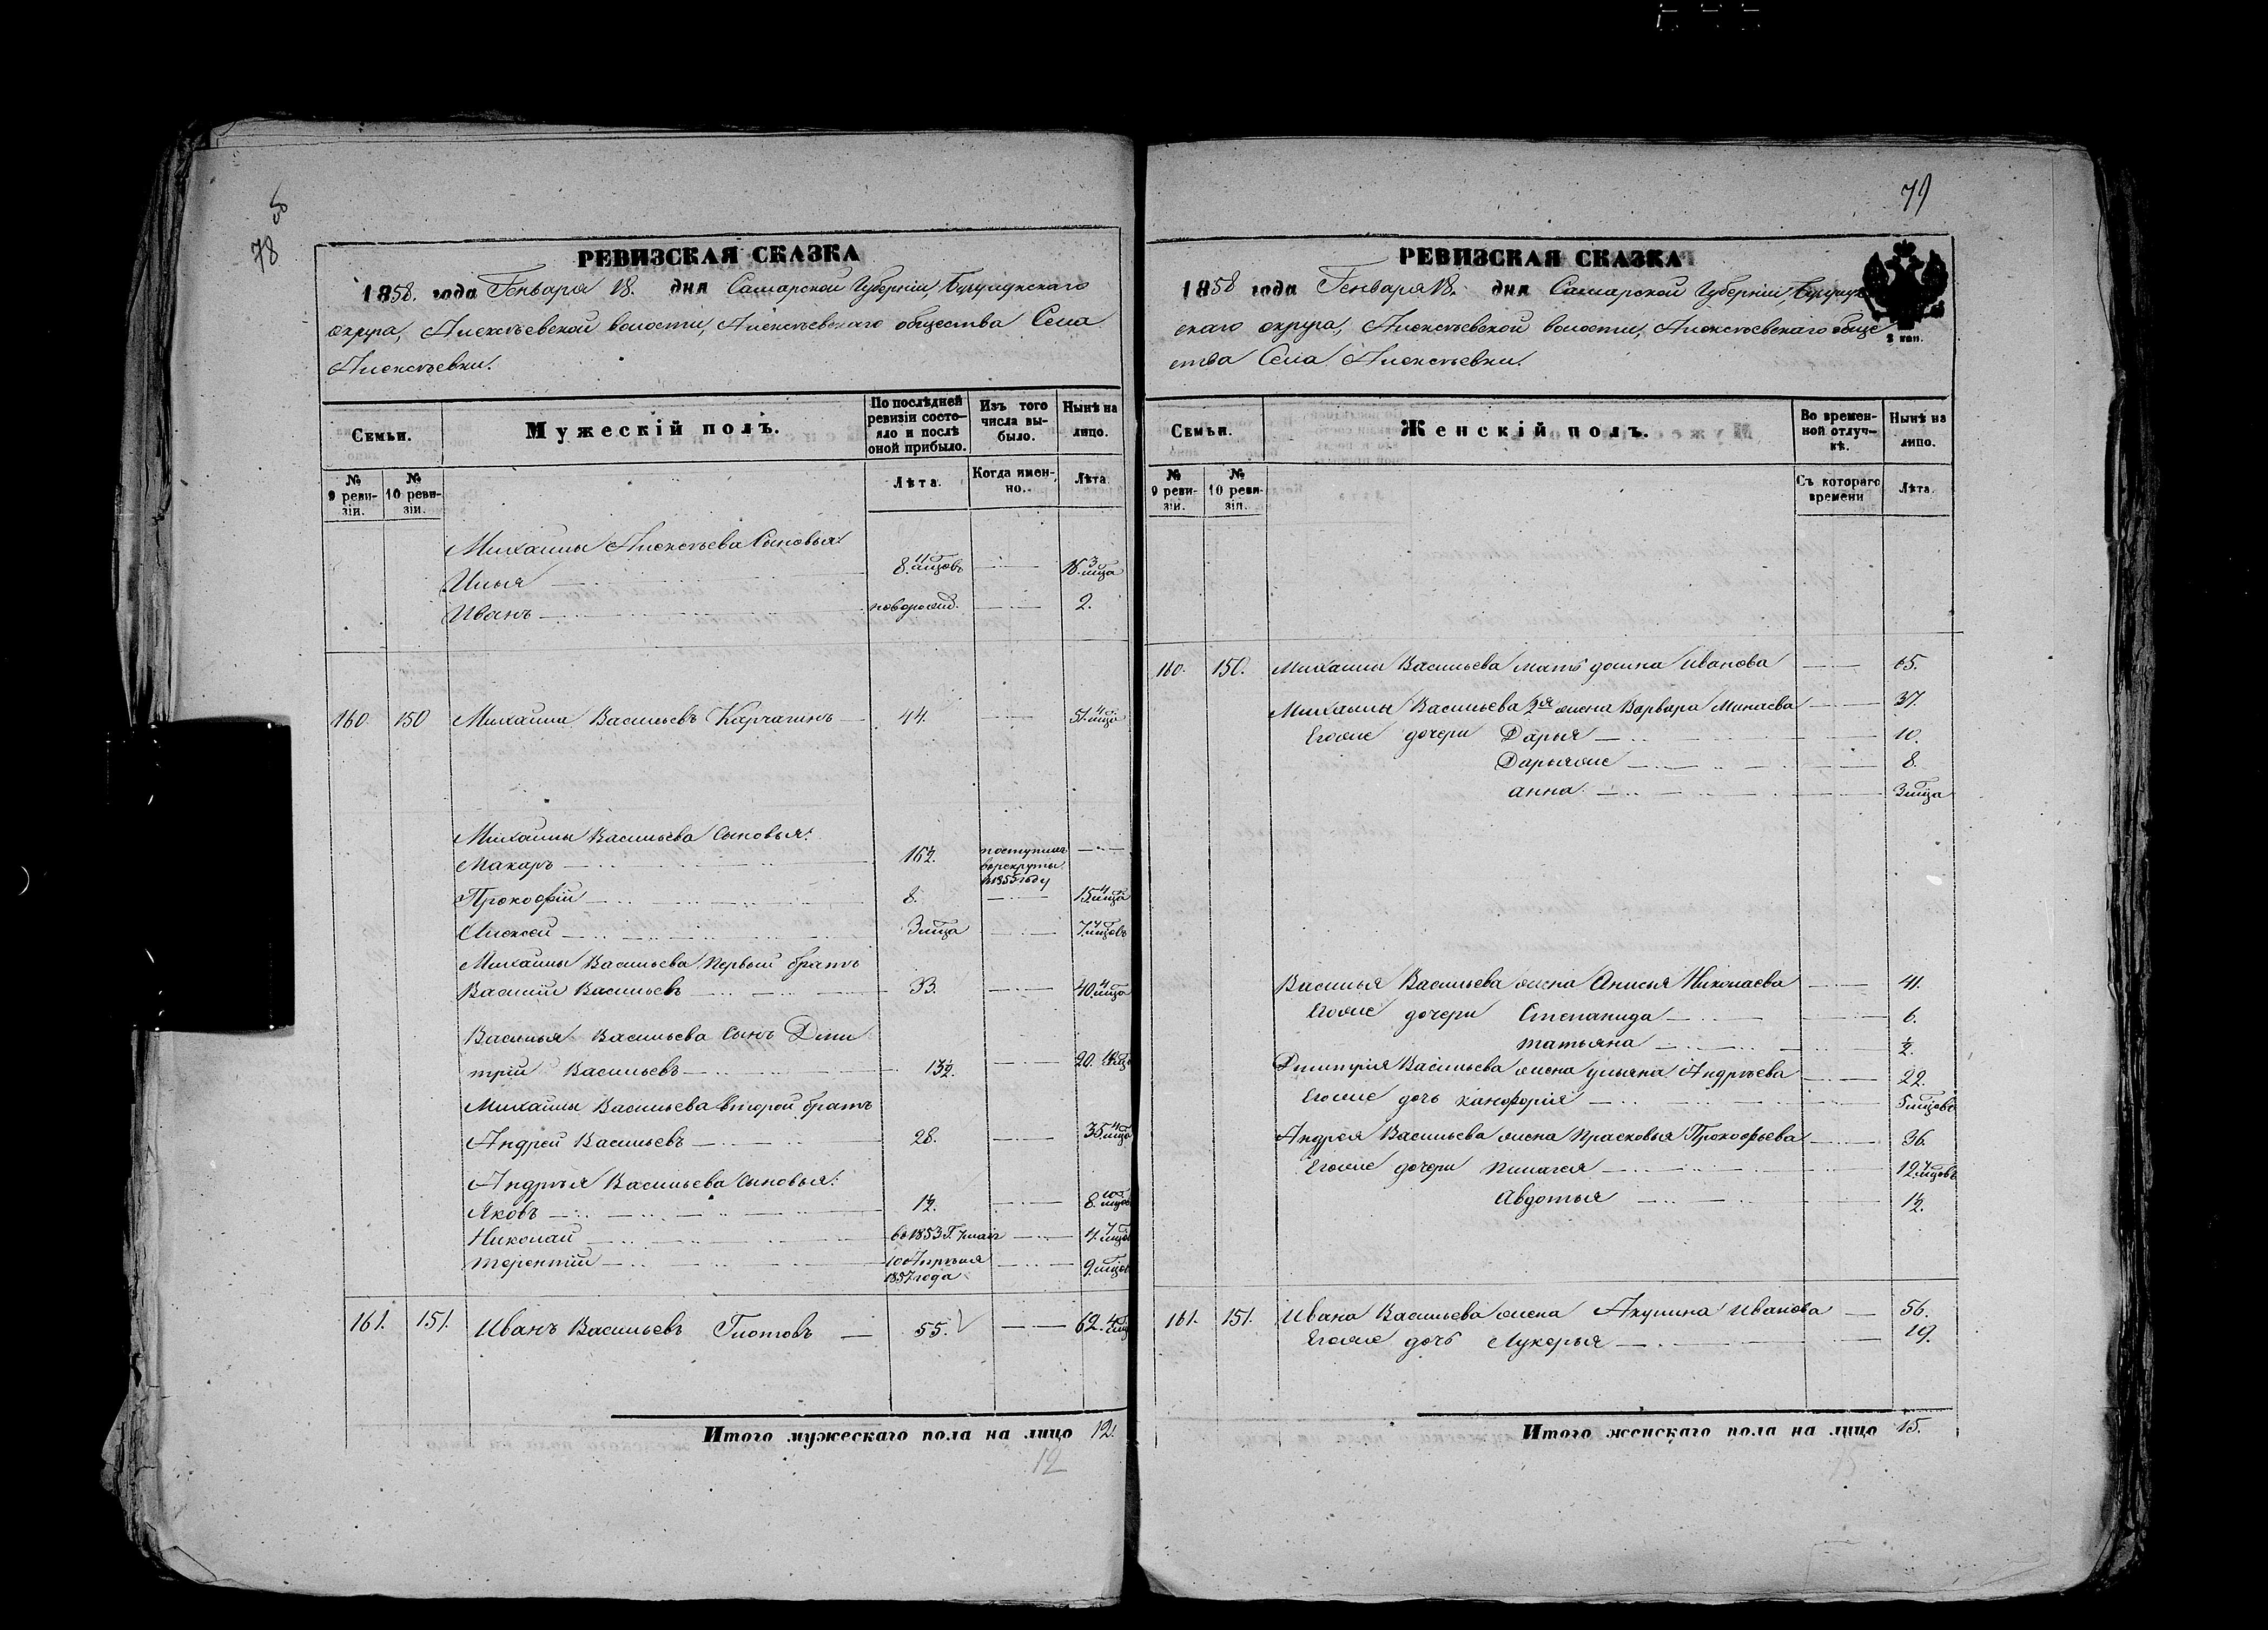 78
РЕВИЗСКАЯ СКАЗКА
1858. года Генваря 18. дня Самарской Губерніи, Бугурусланскаго
округа, Алексѣевской волости, Алексѣевскаго общества Села
Алексѣевки.
Семьи.
Мужескій полъ.
По послѣдней ревизіи состояло и послѣ оной прибыло.
Изъ того числа выбыло.
Нынѣ на лицо.
№ 9 ревизіи.
№ 10 ревизіи.
Лѣта.
Когда именно.
Лѣта.
Михаилы Алексѣева Сыновья:
Илья 8. 11 мцовъ 16. 3 мца
Иванъ новорожд. 2.
160. 150 Михаила Васильевъ Карчагинъ 44. 51. 4 мца
Михаилы Васильева Сыновья:
Макаръ 16½. поступилъ в рекруты в 1855 году
Прокофій 8. 15. 4 мца
Алексей 3 мца 7. 7 мцовъ
Михаилы Васильева Первый братъ
Василій Васильевъ 33. 40. 4 мца
Василья Васильева Сынъ Дми
трій Васильевъ 13½. 20.
Михаилы Васильева второй братъ
Андрей Васильевъ 28. 35. 4 мца
Андрѣя Васильева Сыновья:
Яковъ 1½. 8. 10 мцовъ
Николай в 1853 г. 4. 7 мцовъ
Терентій 10 Апрѣля 1857 года 9 мцов
161. 151. Иванъ Васильевъ Глотовъ 55. 62. 4 мца
Итого мужескаго пола на лицо 12.
12
79
РЕВИЗСКАЯ СКАЗКА
1858 года Генваря 18. дня Самарской Губерніи,
скаго округа, Алексѣевской волости, Алексѣевскаго обще
ства Села Алексѣевки.
Семьи.
Женскій полъ.
Во временной отлучкѣ.
Нынѣ на лицо.
№ 9 ревизіи.
№ 10 ревизіи.
Съ котораго времени
Лѣта.
160. 150. Михаилы Васильева мать домна Иванова 65.
Михаилы Васильева 2я жена Варвара Минаева 37.
Егоже дочери Дарья 10.
Дарьяже 8.
анна 3 мца
Василья Васильева жена Анисья Николаева 41.
Егоже дочери Степанида 6.
татьяна ½.
Дмитрія Васильева жена ульяна Андрѣева 22.
Егоже дочь 5 мцовъ
Андрея Васильева жена Прасковья Прокофьева 36.
Егоже дочери Пилагея 12. 7 мцовъ
Авдотья 1½.
161. 151. Ивана Васильева жена Акулина Иванова 56.
Егоже дочь Лукерья 19.
Итого женскаго пола на лицо 15.
15